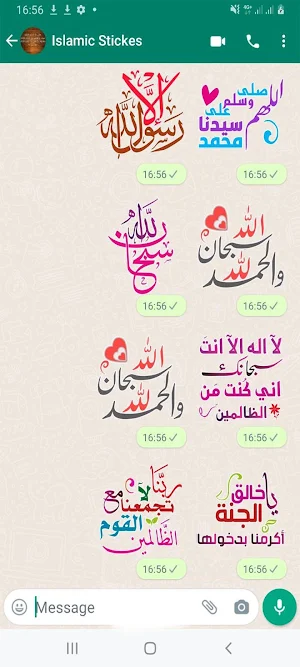 16:56
4G+
Islamic Stickes
إلا رسول الله
16:56
اللهم صلى وسلم على سيدنا محمد
16:56
سبحان الله
16:56
سبحان الله والحمد لله
16:56
سبحان الله والحمد لله
16:56
لا اله الا انت
سبحانك
اني كنت من
الظالمين
16:56
ربنا
لا تجمعنا مع
القوم
الظالمين
16:56
يا خالق
الجنة
أكرمنا بدخولها
16:56
Message